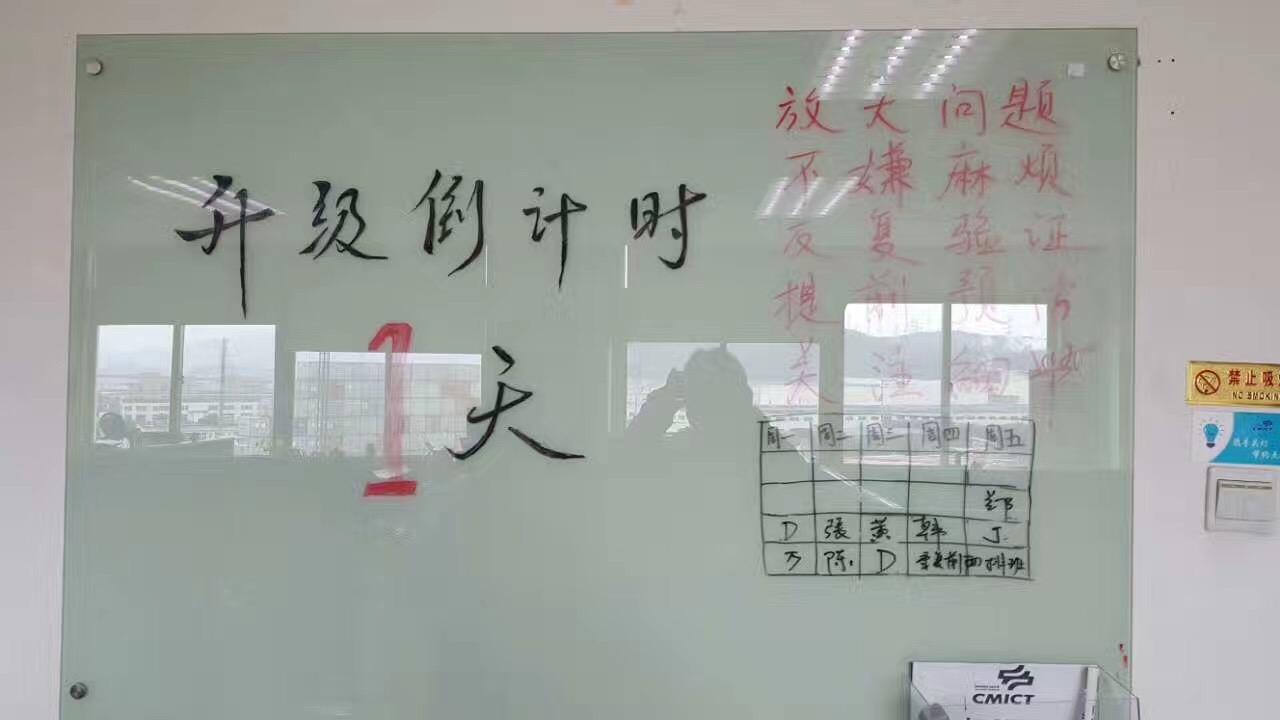 升级倒计时
1天
放大问题
不嫌麻烦
反复验证
提前预
关注细
周一 周二 周三 周四 周五
郑
D 张 黄 韩 J.
万 陈. D 重复前四排班
禁止吸
NO SMOKIN
CMICT